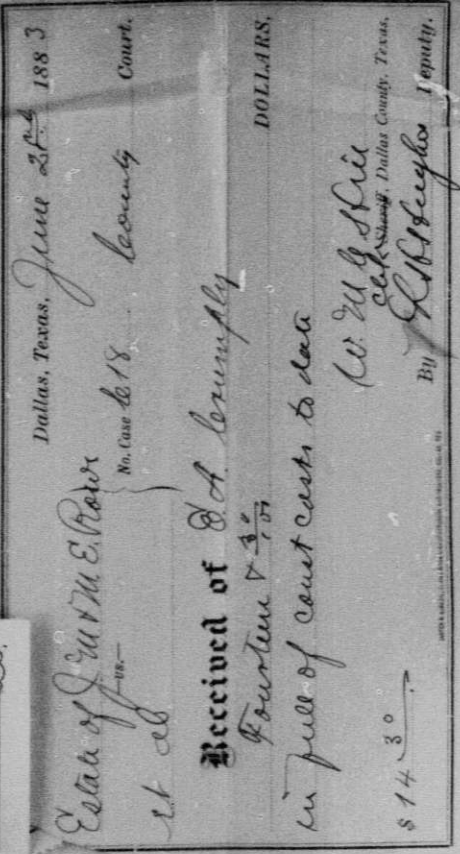 Dallas, Texas, June 2nd 1883
Estate of J. M & M. E. Rowe
—vs.—
No. Case 618 County Court.
et al
Received of D. A. Crumply
Fourteen & 30/100 DOLLARS,
in full of court costs to date
W. M. G
Clerk Sheriff, Dallas County, Texas,
$14 30
By Hughes Deputy.